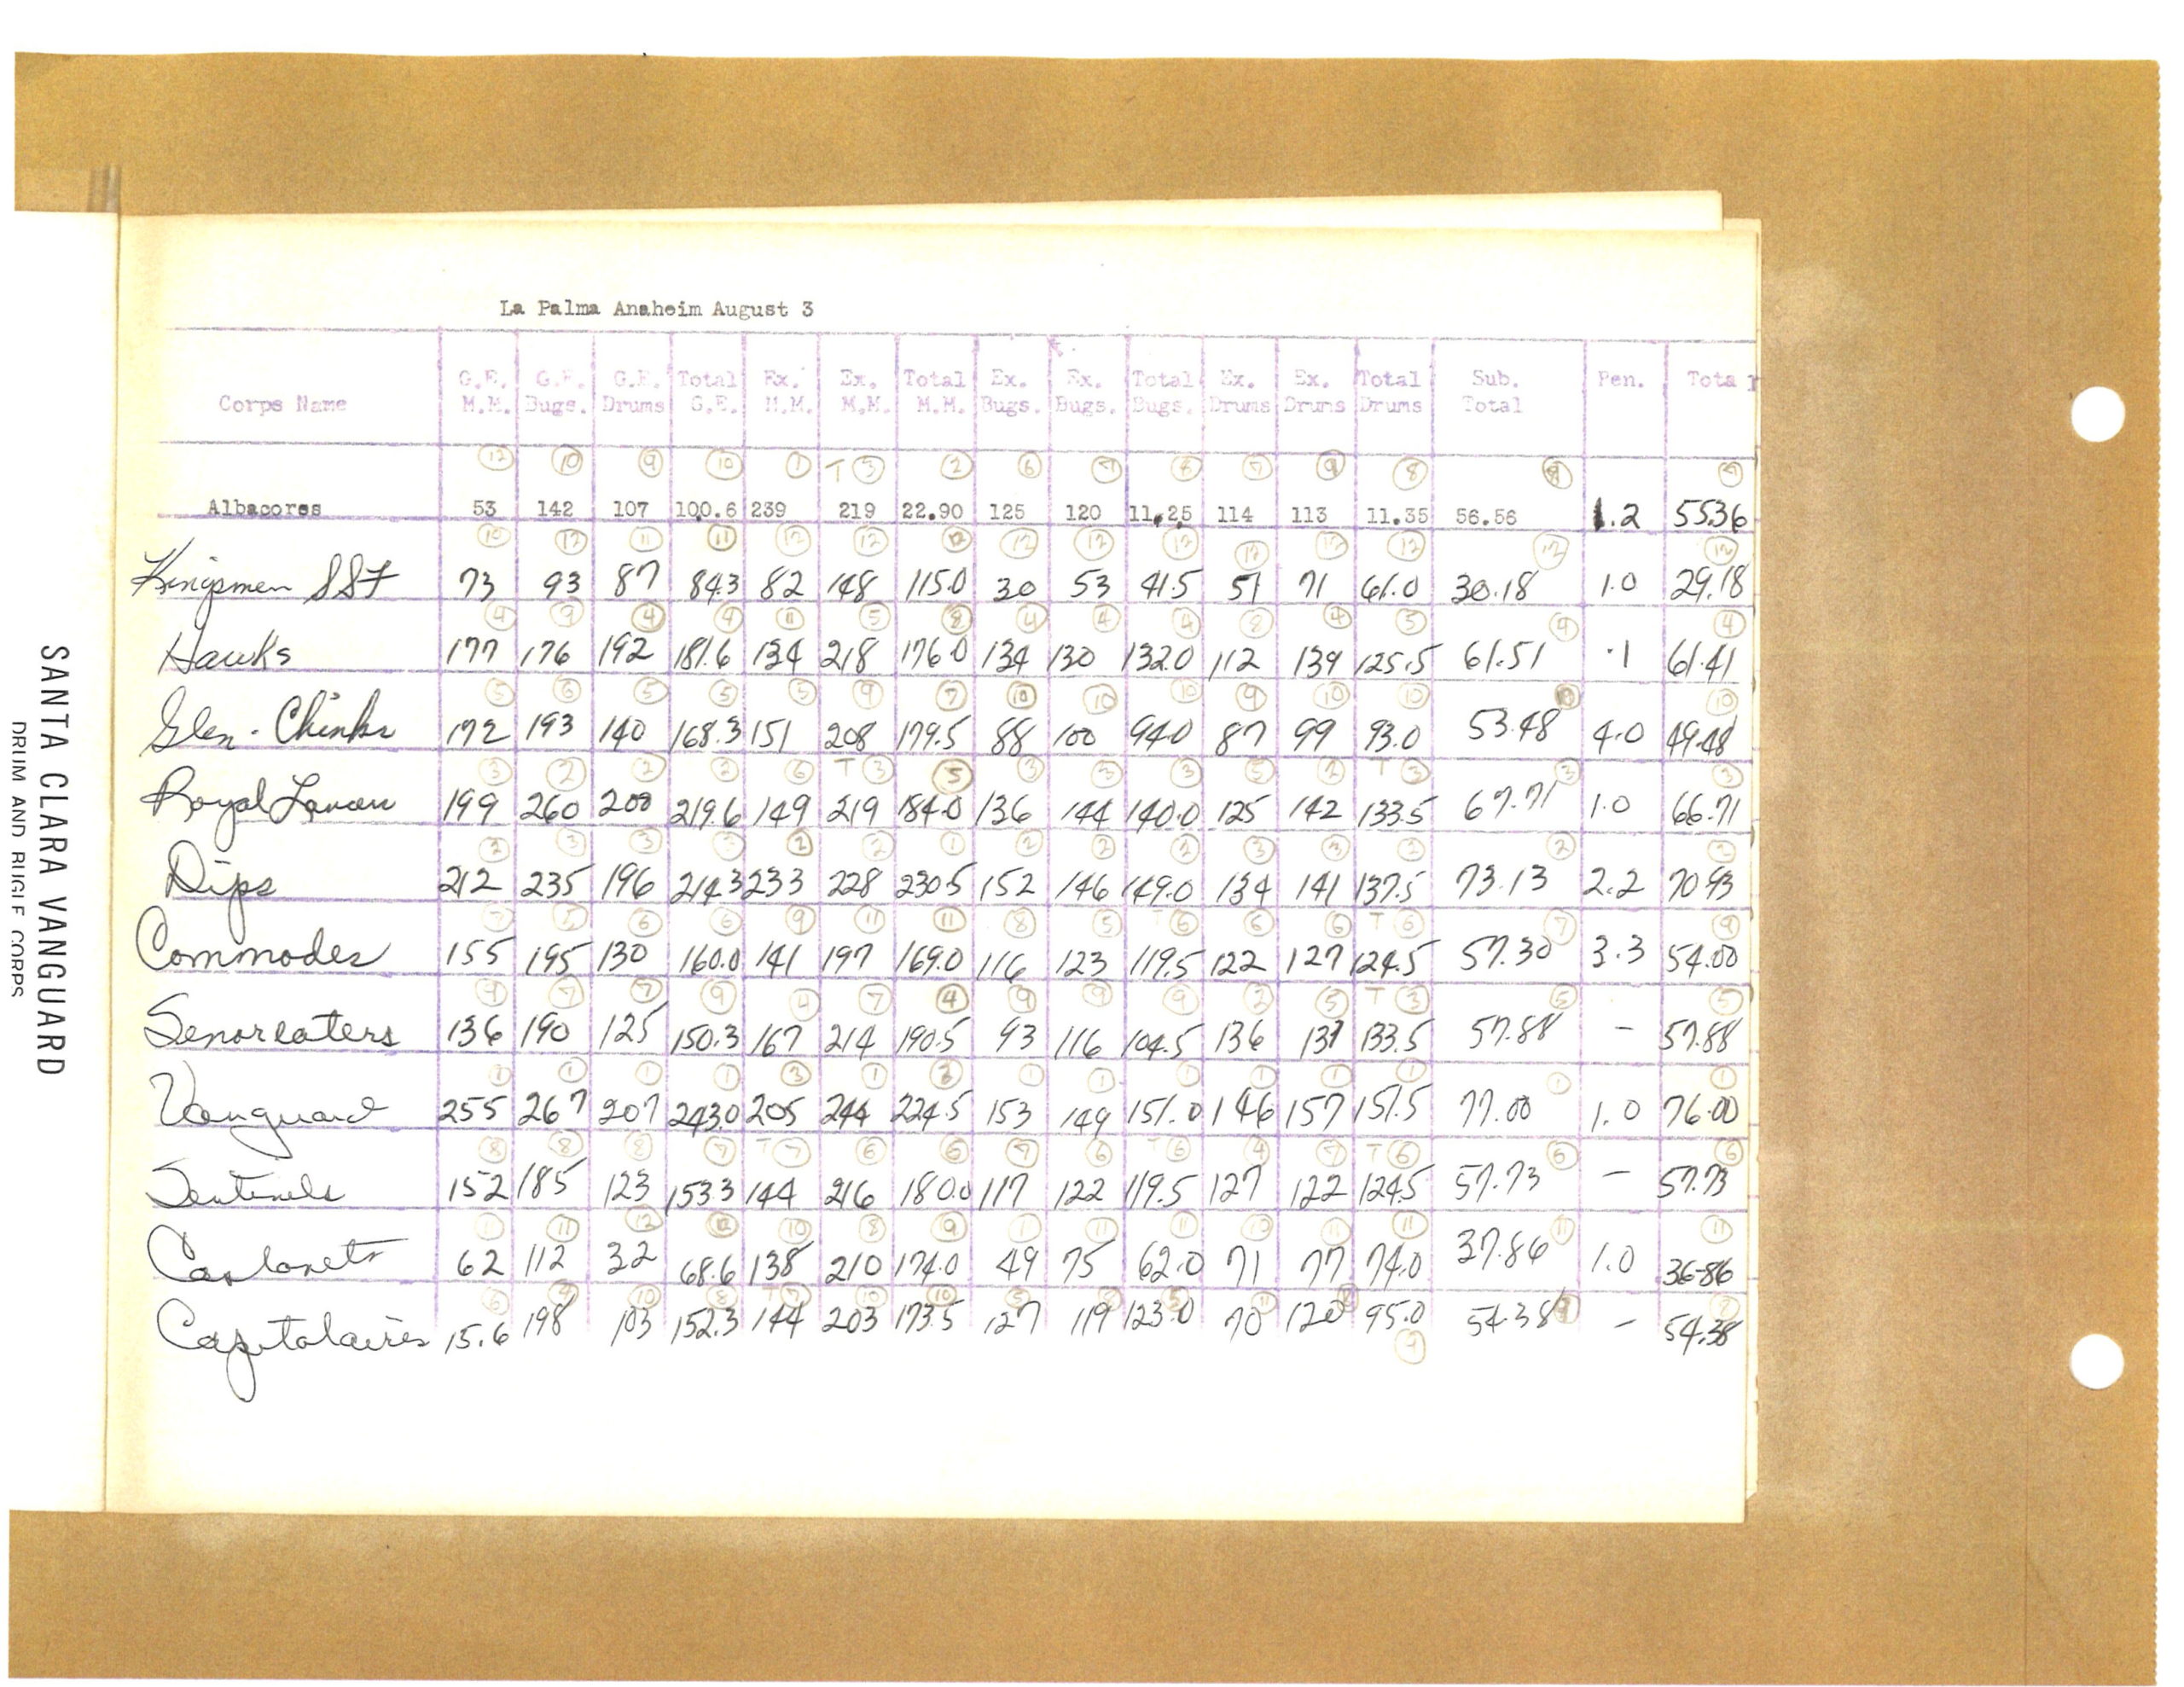 La Palma Anaheim August 3
Corps Name G.E. M.M. G.E. Bugs. G.E. Drums Total G.E. Ex. M.M. Ex. M.M. Total M.M. Ex. Bugs. Ex. Bugs. Total Bugs. Ex. Drums Ex. Drums Total Drums Sub. Total Pen. Total
12 10 9 10 1 T 3 2 6 7 8 7 9 8 8 7
Albacores 53 142 107 100.6 239 219 22.90 125 120 11.25 114 113 11.35 56.56 1.2 55.36
10 12 11 11 12 12 12 12 12 12 12 12 12 12 12
Kingsmen SSF 73 93 87 84.3 82 148 115.0 30 53 41.5 51 71 61.0 30.18 1.0 29.18
4 9 4 4 11 5 8 4 4 4 8 4 5 4 4
Hawks 177 176 192 181.6 134 218 176.0 134 130 132.0 112 139 125.5 61.51 .1 61.41
5 6 5 5 5 9 7 10 10 10 9 10 10 10 10
Glen-Chinks 172 193 140 168.3 151 208 179.5 88 100 94.0 87 99 93.0 53.48 4.0 49.48
3 2 2 2 6 T 3 5 3 3 3 5 2 T 3 3 3
Royal Lancers 199 260 200 219.6 149 219 184.0 136 144 140.0 125 142 133.5 67.71 1.0 66.71
2 3 3 3 2 2 1 2 2 2 3 3 2 2 2
Dips 212 235 196 214.3 233 228 230.5 152 146 149.0 134 141 137.5 73.13 2.2 70.93
7 5 6 6 9 11 11 8 5 T 6 6 6 T 6 7 9
Commodes 155 195 130 160.0 141 197 169.0 116 123 119.5 122 127 124.5 57.30 3.3 54.00
9 7 7 9 4 7 4 9 9 9 2 5 T 3 5 5
Senoreaters 136 190 125 150.3 167 214 190.5 93 116 104.5 136 131 133.5 57.88 - 57.88
1 1 1 1 3 1 3 1 1 1 1 1 1 1 1
Vanguard 255 267 207 243.0 205 244 224.5 153 149 151.0 146 157 151.5 77.00 1.0 76.00
8 8 8 7 T 7 6 6 7 6 T 6 4 7 T 6 6 6
Sentinels 152 185 123 153.3 144 216 180.0 117 122 119.5 127 122 124.5 57.73 - 57.73
11 11 12 12 10 8 9 11 11 11 10 11 11 11 11
Castonets 62 112 32 68.6 138 210 174.0 49 75 62.0 71 77 74.0 37.86 1.0 36-86
6 4 10 8 T 7 10 10 5 8 5 11 8 9 8
Capitolaires 15.6 198 103 152.3 144 203 173.5 127 119 123.0 70 120 95.0 54.38 - 54.38
9
SANTA CLARA VANGUARD
DRUM AND BUGLE CORPS